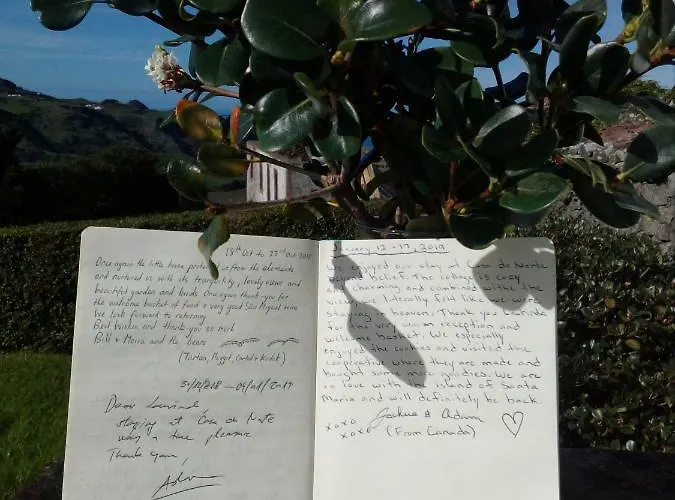 18th Oct to 23rd Oct 2018
Once again the little house protected us from the elements
and nurtured us with its tranquility, lovely views and
beautiful garden and birds. Once again thank-you for
the welcome basket of food & very good São Miguel wine
We look forward to returning
Best wishes and thank you so much
Bill & Moira and the bears
31/12/2018 — 05/01/2019
Dear
staying at Casa do Norte
was a true pleasure
Thank you!
January 12-17, 2019
We enjoyed our stay at Casa do Norte
very much. The cottage is cosy
& charming and combined with the
view we literally felt like we were
staying in heaven. Thank you
for the very warm reception and
welcome basket. We especially
enjoyed the cookies and visited the
cooperative where they are made and
bought some more goodies. We are
in love with the island of Santa
Maria and will definitely be back.
& Adam
xoxo
xoxo (From Canada)